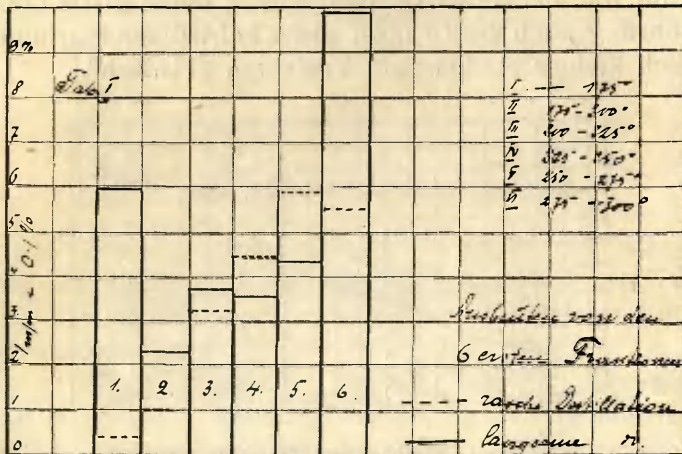 9%
8
7
6
5
4
3
2
1
0
1/m/m = 0·1 %
Tab. I
I --- 175°
II 175 - 200°
III 200 - 225°
IV 225 - 250°
V 250 - 275°
VI 275 - 300°
1. 2. 3. 4. 5. 6.
Ausbeuten von den
6 ersten Fraktionen
---- rasche Destillation
—— langsame